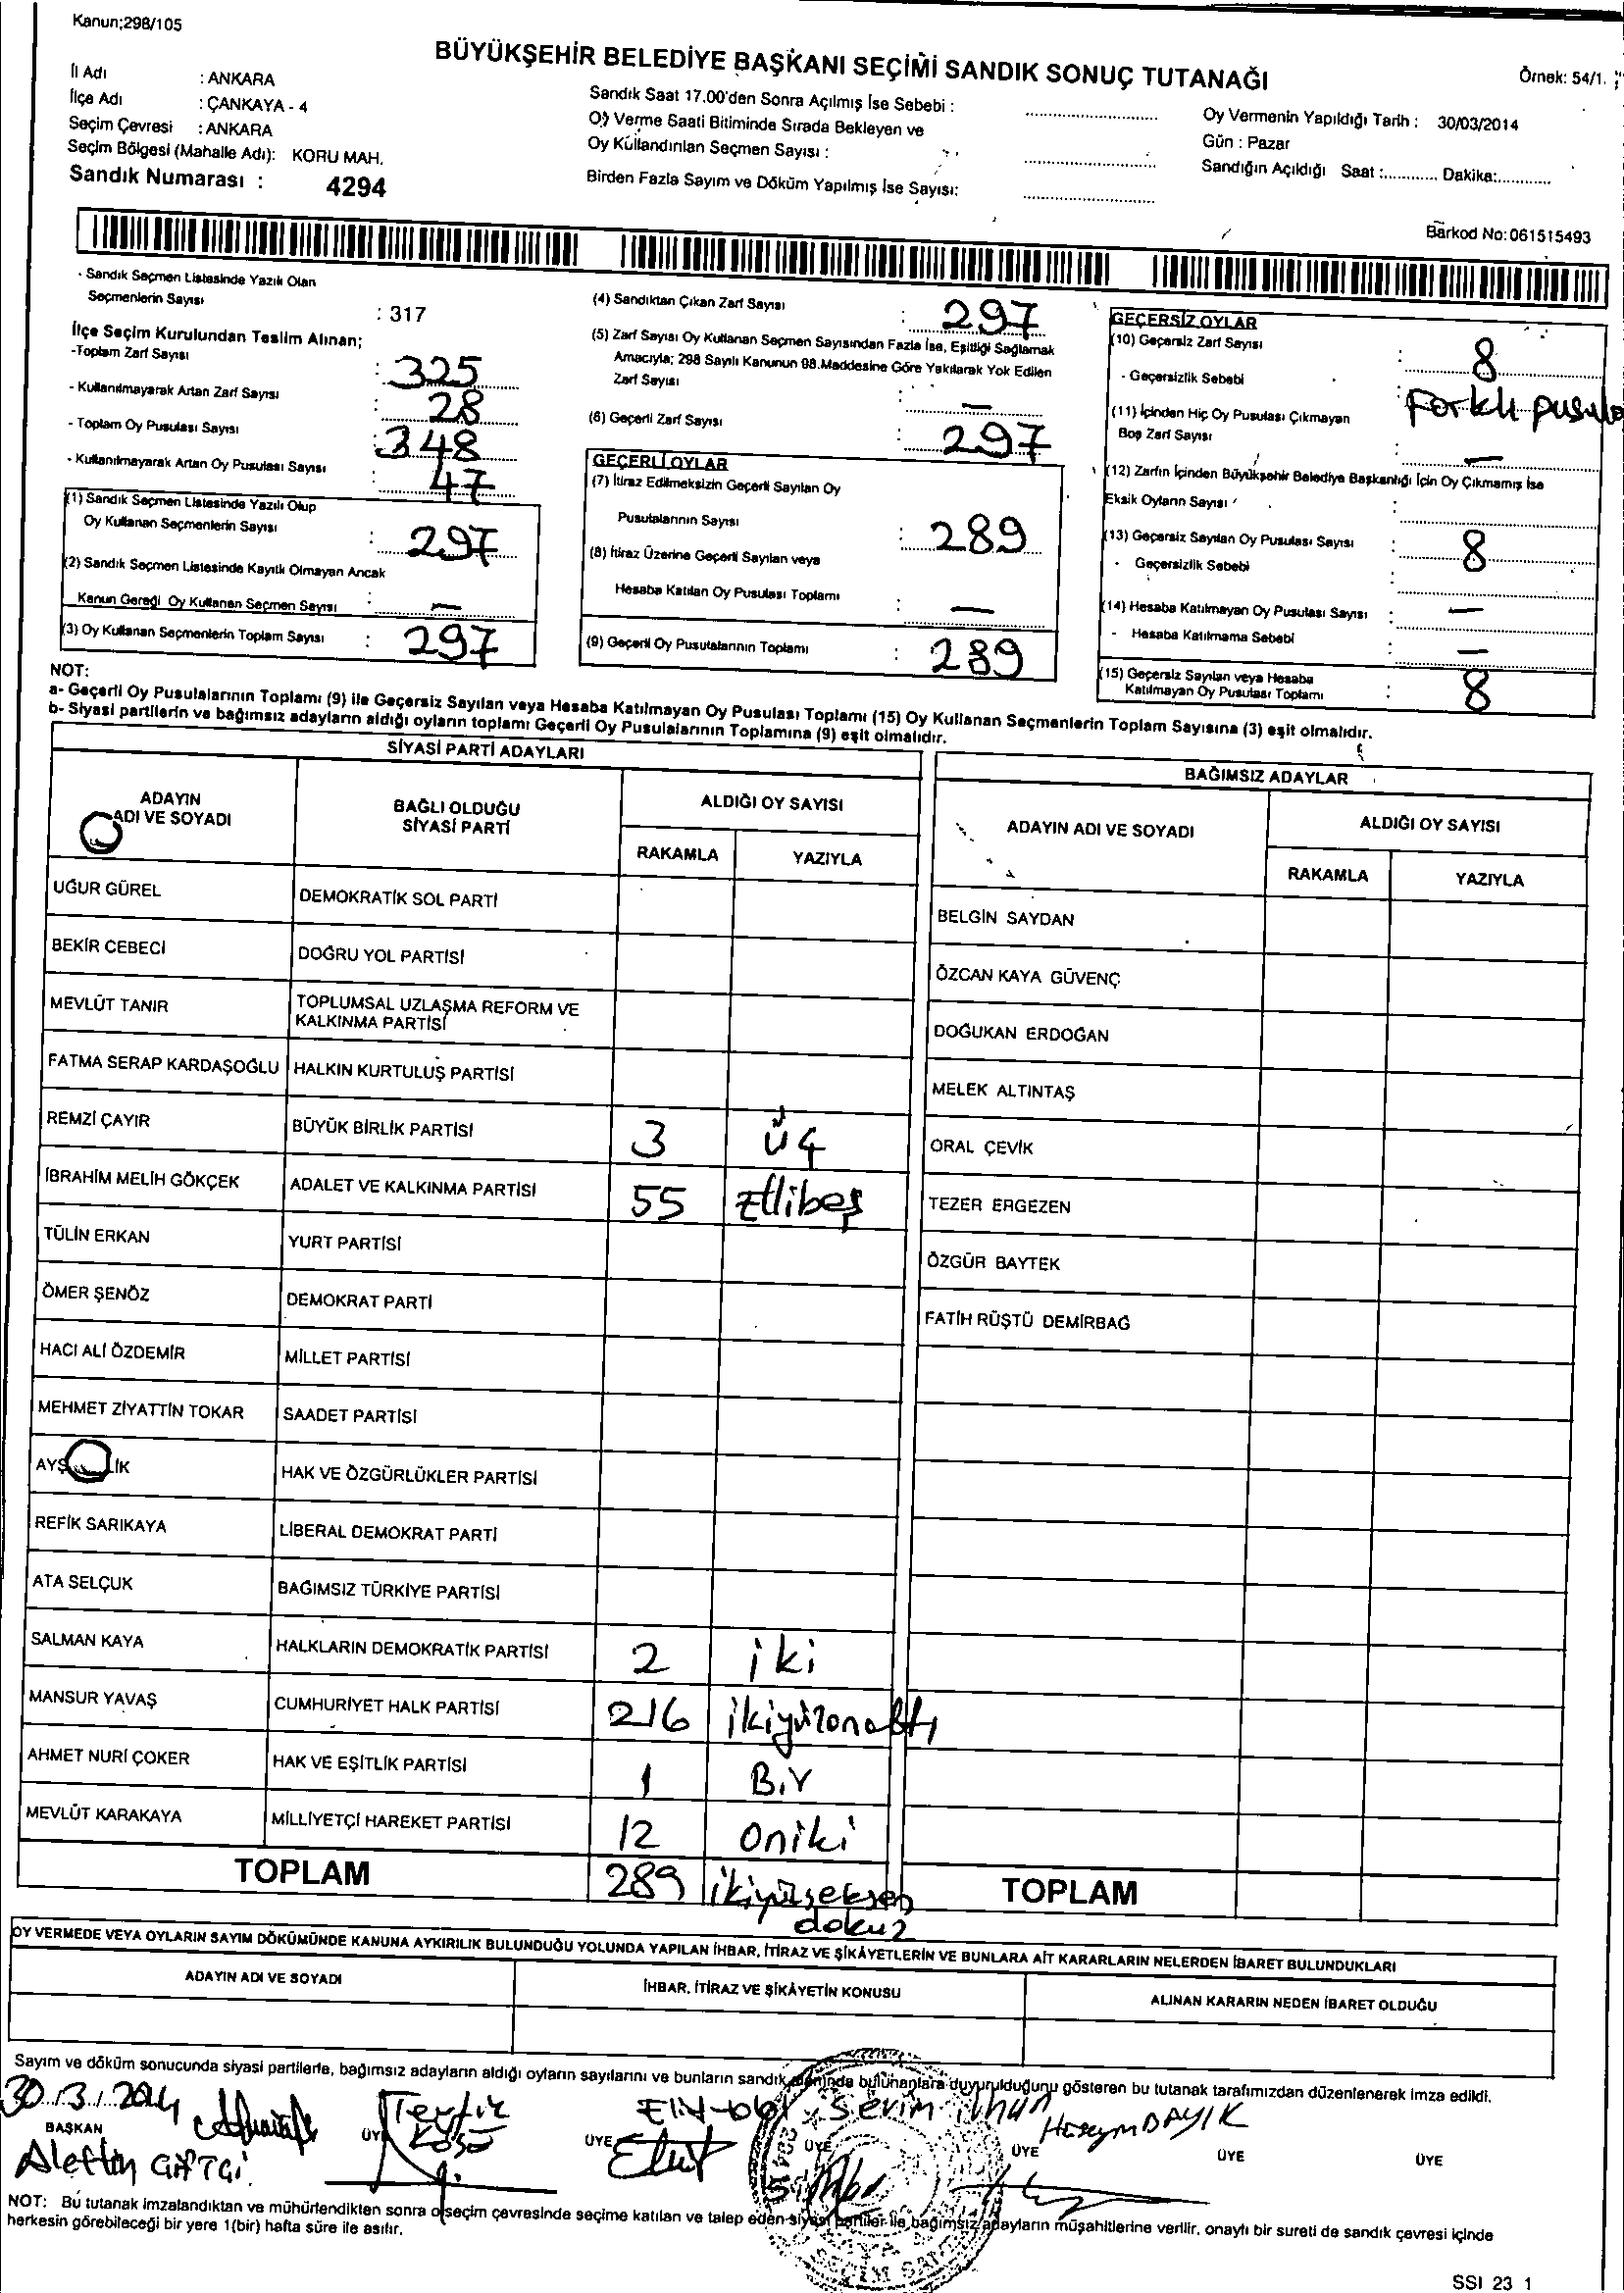 Kanun;298/105
BÜYÜKŞEHİR BELEDİYE BAŞKANI SEÇİMİ SANDIK SONUÇ TUTANAĞI
Örnek: 54/1.
İl Adı : ANKARA
İlçe Adı : ÇANKAYA - 4
Seçim Çevresi : ANKARA
Seçim Bölgesi (Mahalle Adı): KORU MAH.
Sandık Numarası : 4294
Sandık Saat 17.00'den Sonra Açılmış İse Sebebi :
Oy Verme Saati Bitiminde Sırada Bekleyen ve
Oy Kullandırılan Seçmen Sayısı :
Birden Fazla Sayım ve Döküm Yapılmış İse Sayısı:
Oy Vermenin Yapıldığı Tarih : 30/03/2014
Gün : Pazar
Sandığın Açıldığı Saat :............ Dakika:............
Barkod No:061515493
- Sandık Seçmen Listesinde Yazılı Olan
Seçmenlerin Sayısı : 317
İlçe Seçim Kurulundan Teslim Alınan;
-Toplam Zarf Sayısı : 325
- Kullanılmayarak Artan Zarf Sayısı : 28
- Toplam Oy Pusulası Sayısı : 348
- Kullanılmayarak Artan Oy Pusulası Sayısı : 47
(1) Sandık Seçmen Listesinde Yazılı Olup
Oy Kullanan Seçmenlerin Sayısı : 297
(2) Sandık Seçmen Listesinde Kayıtlı Olmayan Ancak
Kanun Gereği Oy Kullanan Seçmen Sayısı : —
(3) Oy Kullanan Seçmenlerin Toplam Sayısı : 297
(4) Sandıktan Çıkan Zarf Sayısı : 297
(5) Zarf Sayısı Oy Kullanan Seçmen Sayısından Fazla İse, Eşitliği Sağlamak
Amacıyla; 298 Sayılı Kanunun 98.Maddesine Göre Yakılarak Yok Edilen
Zarf Sayısı : —
(6) Geçerli Zarf Sayısı : 297
GEÇERLİ OYLAR
(7) İtiraz Edilmeksizin Geçerli Sayılan Oy
Pusulalarının Sayısı : 289
(8) İtiraz Üzerine Geçerli Sayılan veya
Hesaba Katılan Oy Pusulası Toplamı : —
(9) Geçerli Oy Pusulalarının Toplamı : 289
GEÇERSİZ OYLAR
(10) Geçersiz Zarf Sayısı : 8
- Geçersizlik Sebebi : Farklı pusula
(11) İçinden Hiç Oy Pusulası Çıkmayan
Boş Zarf Sayısı : —
(12) Zarfın İçinden Büyükşehir Belediye Başkanlığı İçin Oy Çıkmamış İse
Eksik Oyların Sayısı :
(13) Geçersiz Sayılan Oy Pusulası Sayısı : 8
- Geçersizlik Sebebi :
(14) Hesaba Katılmayan Oy Pusulası Sayısı : —
- Hesaba Katılmama Sebebi : —
(15) Geçersiz Sayılan veya Hesaba
Katılmayan Oy Pusulası Toplamı : 8
NOT:
a- Geçerli Oy Pusulalarının Toplamı (9) ile Geçersiz Sayılan veya Hesaba Katılmayan Oy Pusulası Toplamı (15) Oy Kullanan Seçmenlerin Toplam Sayısına (3) eşit olmalıdır.
b- Siyasi partilerin ve bağımsız adayların aldığı oyların toplamı Geçerli Oy Pusulalarının Toplamına (9) eşit olmalıdır.
SİYASİ PARTİ ADAYLARI
ADAYIN
ADI VE SOYADI
BAĞLI OLDUĞU
SİYASİ PARTİ
ALDIĞI OY SAYISI
RAKAMLA YAZIYLA
UĞUR GÜREL DEMOKRATİK SOL PARTİ
BEKİR CEBECİ DOĞRU YOL PARTİSİ
MEVLÜT TANIR TOPLUMSAL UZLAŞMA REFORM VE
KALKINMA PARTİSİ
FATMA SERAP KARDAŞOĞLU HALKIN KURTULUŞ PARTİSİ
REMZİ ÇAYIR BÜYÜK BİRLİK PARTİSİ 3 üç
İBRAHİM MELİH GÖKÇEK ADALET VE KALKINMA PARTİSİ 55 Ellibeş
TÜLİN ERKAN YURT PARTİSİ
ÖMER ŞENÖZ DEMOKRAT PARTİ
HACI ALİ ÖZDEMİR MİLLET PARTİSİ
MEHMET ZİYATTİN TOKAR SAADET PARTİSİ
HAK VE ÖZGÜRLÜKLER PARTİSİ
REFİK SARIKAYA LİBERAL DEMOKRAT PARTİ
ATA SELÇUK BAĞIMSIZ TÜRKİYE PARTİSİ
SALMAN KAYA HALKLARIN DEMOKRATİK PARTİSİ 2 iki
MANSUR YAVAŞ CUMHURİYET HALK PARTİSİ 216 ikiyüzonaltı
AHMET NURİ ÇOKER HAK VE EŞİTLİK PARTİSİ 1 Bir
MEVLÜT KARAKAYA MİLLİYETÇİ HAREKET PARTİSİ 12 oniki
TOPLAM 289 ikiyüzseksen
dokuz
BAĞIMSIZ ADAYLAR
ADAYIN ADI VE SOYADI
ALDIĞI OY SAYISI
RAKAMLA YAZIYLA
BELGİN SAYDAN
ÖZCAN KAYA GÜVENÇ
DOĞUKAN ERDOĞAN
MELEK ALTINTAŞ
ORAL ÇEVİK
TEZER ERGEZEN
ÖZGÜR BAYTEK
FATİH RÜŞTÜ DEMİRBAĞ
TOPLAM
OY VERMEDE VEYA OYLARIN SAYIM DÖKÜMÜNDE KANUNA AYKIRILIK BULUNDUĞU YOLUNDA YAPILAN İHBAR, İTİRAZ VE ŞİKÂYETLERİN VE BUNLARA AİT KARARLARIN NELERDEN İBARET BULUNDUKLARI
ADAYIN ADI VE SOYADI
İHBAR, İTİRAZ VE ŞİKÂYETİN KONUSU
ALINAN KARARIN NEDEN İBARET OLDUĞU
Sayım ve döküm sonucunda siyasi partilerle, bağımsız adayların aldığı oyların sayılarını ve bunların sandık alanında bulunanlara duyurulduğunu gösteren bu tutanak tarafımızdan düzenlenerek imza edildi.
30/3/2014
BAŞKAN
ÜYE Tevfik Köse
ÜYE
ÜYE Sevim ilhan
ÜYE Hüseyin DAYIK
ÜYE
ÜYE
NOT: Bu tutanak imzalandıktan ve mühürlendikten sonra o seçim çevresinde seçime katılan ve talep eden siyasi partiler ile bağımsız adayların müşahitlerine verilir, onaylı bir sureti de sandık çevresi içinde
herkesin görebileceği bir yere 1(bir) hafta süre ile asılır.
SSI 23 1